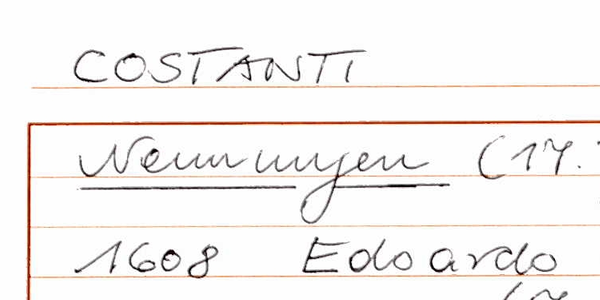 COSTANTI
Nennungen (17.
1608 Edoardo
(17